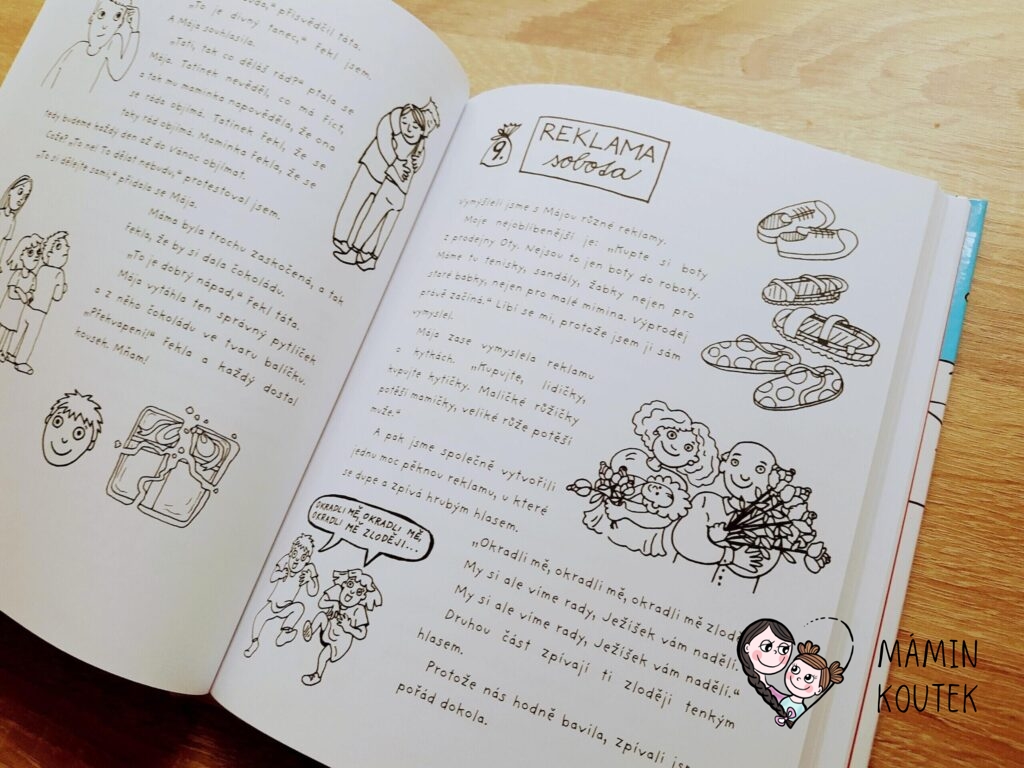 přisvědčil táta.
„To je divný tanec,“ řekl jsem.
A Mája souhlasila.
„Tati, tak co děláš rád?“ ptala se
Mája. Tatínek nevěděl, co má říct,
a tak mu maminka napověděla, že ona
se ráda objímá. Tatínek řekl, že se
taky rád objímá. Maminka řekla, že se
tedy budeme každý den až do Vánoc objímat.
„Cože? „To ne! To dělat nebudu,“ protestoval jsem.
„To si dělejte sami,“ přidala se Mája.
Máma byla trochu zaskočená, a tak
řekla, že by si dala čokoládu.
„To je dobrý nápad,“ řekl táta.
Mája vytáhla ten správný pytlíček
a z něho čokoládu ve tvaru balíčku.
„Překvapení!“ řekla a každý dostal
kousek. Mňam!
9.
REKLAMA
sobosa
Vymýšleli jsme s Májou různé reklamy.
Moje nejoblíbenější je: „Kupte si boty
z prodejny Oty. Nejsou to jen boty do roboty.
Máme tu tenisky, sandály, žabky nejen pro
staré babky, nejen pro malé mimina. Výprodej
právě začíná.“ Líbí se mi, protože jsem ji sám
vymyslel.
Mája zase vymyslela reklamu
o kytkách. „Kupujte, lidičky,
kupujte kytičky. Maličké růžičky
potěší mamičky, veliké růže potěší
muže.“
A pak jsme společně vytvořili
jednu moc pěknou reklamu, u které
se dupe a zpívá hrubým hlasem.
OKRADLI MĚ, OKRADLI MĚ,
OKRADLI MĚ ZLODĚJI...
„Okradli mě, okradli mě, okradli mě
My si ale víme rady, Ježíšek vám nadělí.
My si ale víme rady, Ježíšek vám nadělí.“
Druhou část zpívají ti zloději tenkým
hlasem.
Protože nás hodně bavila, zpívali
pořád dokola.
MÁMIN
KOUTEK